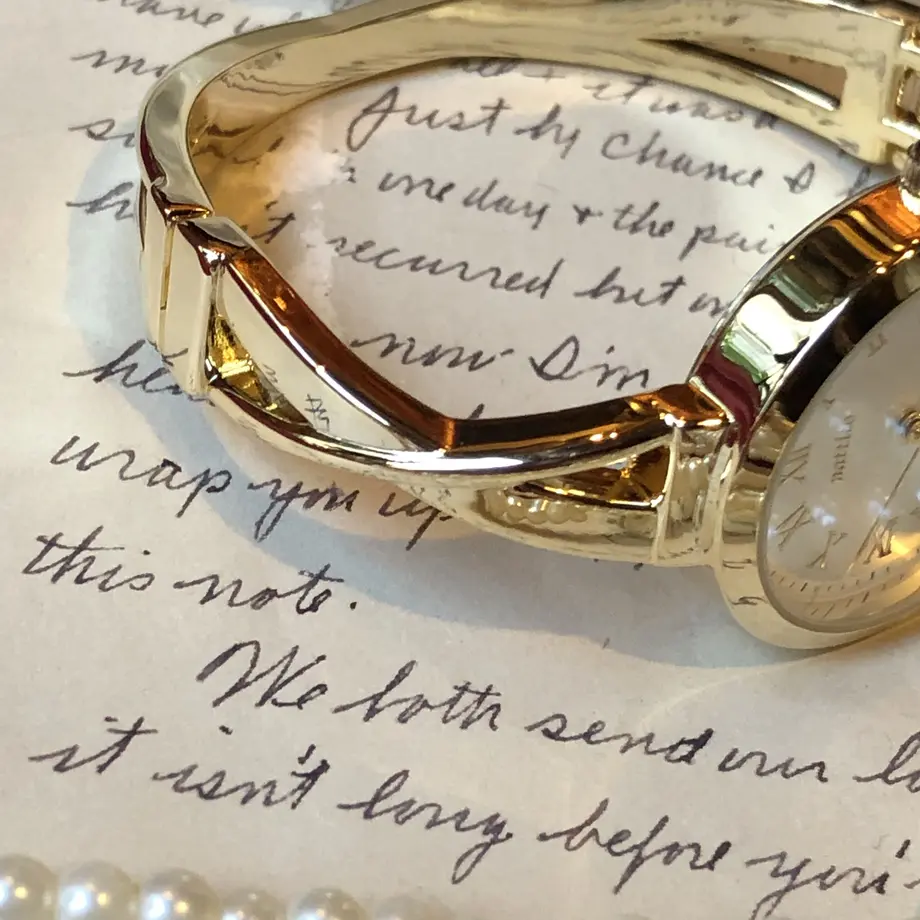 have
it was a
Just by chance I
one day & the pai
it recurred but
now I'm
wrap you up
this note.
We both send our lo
it isn't long before you'